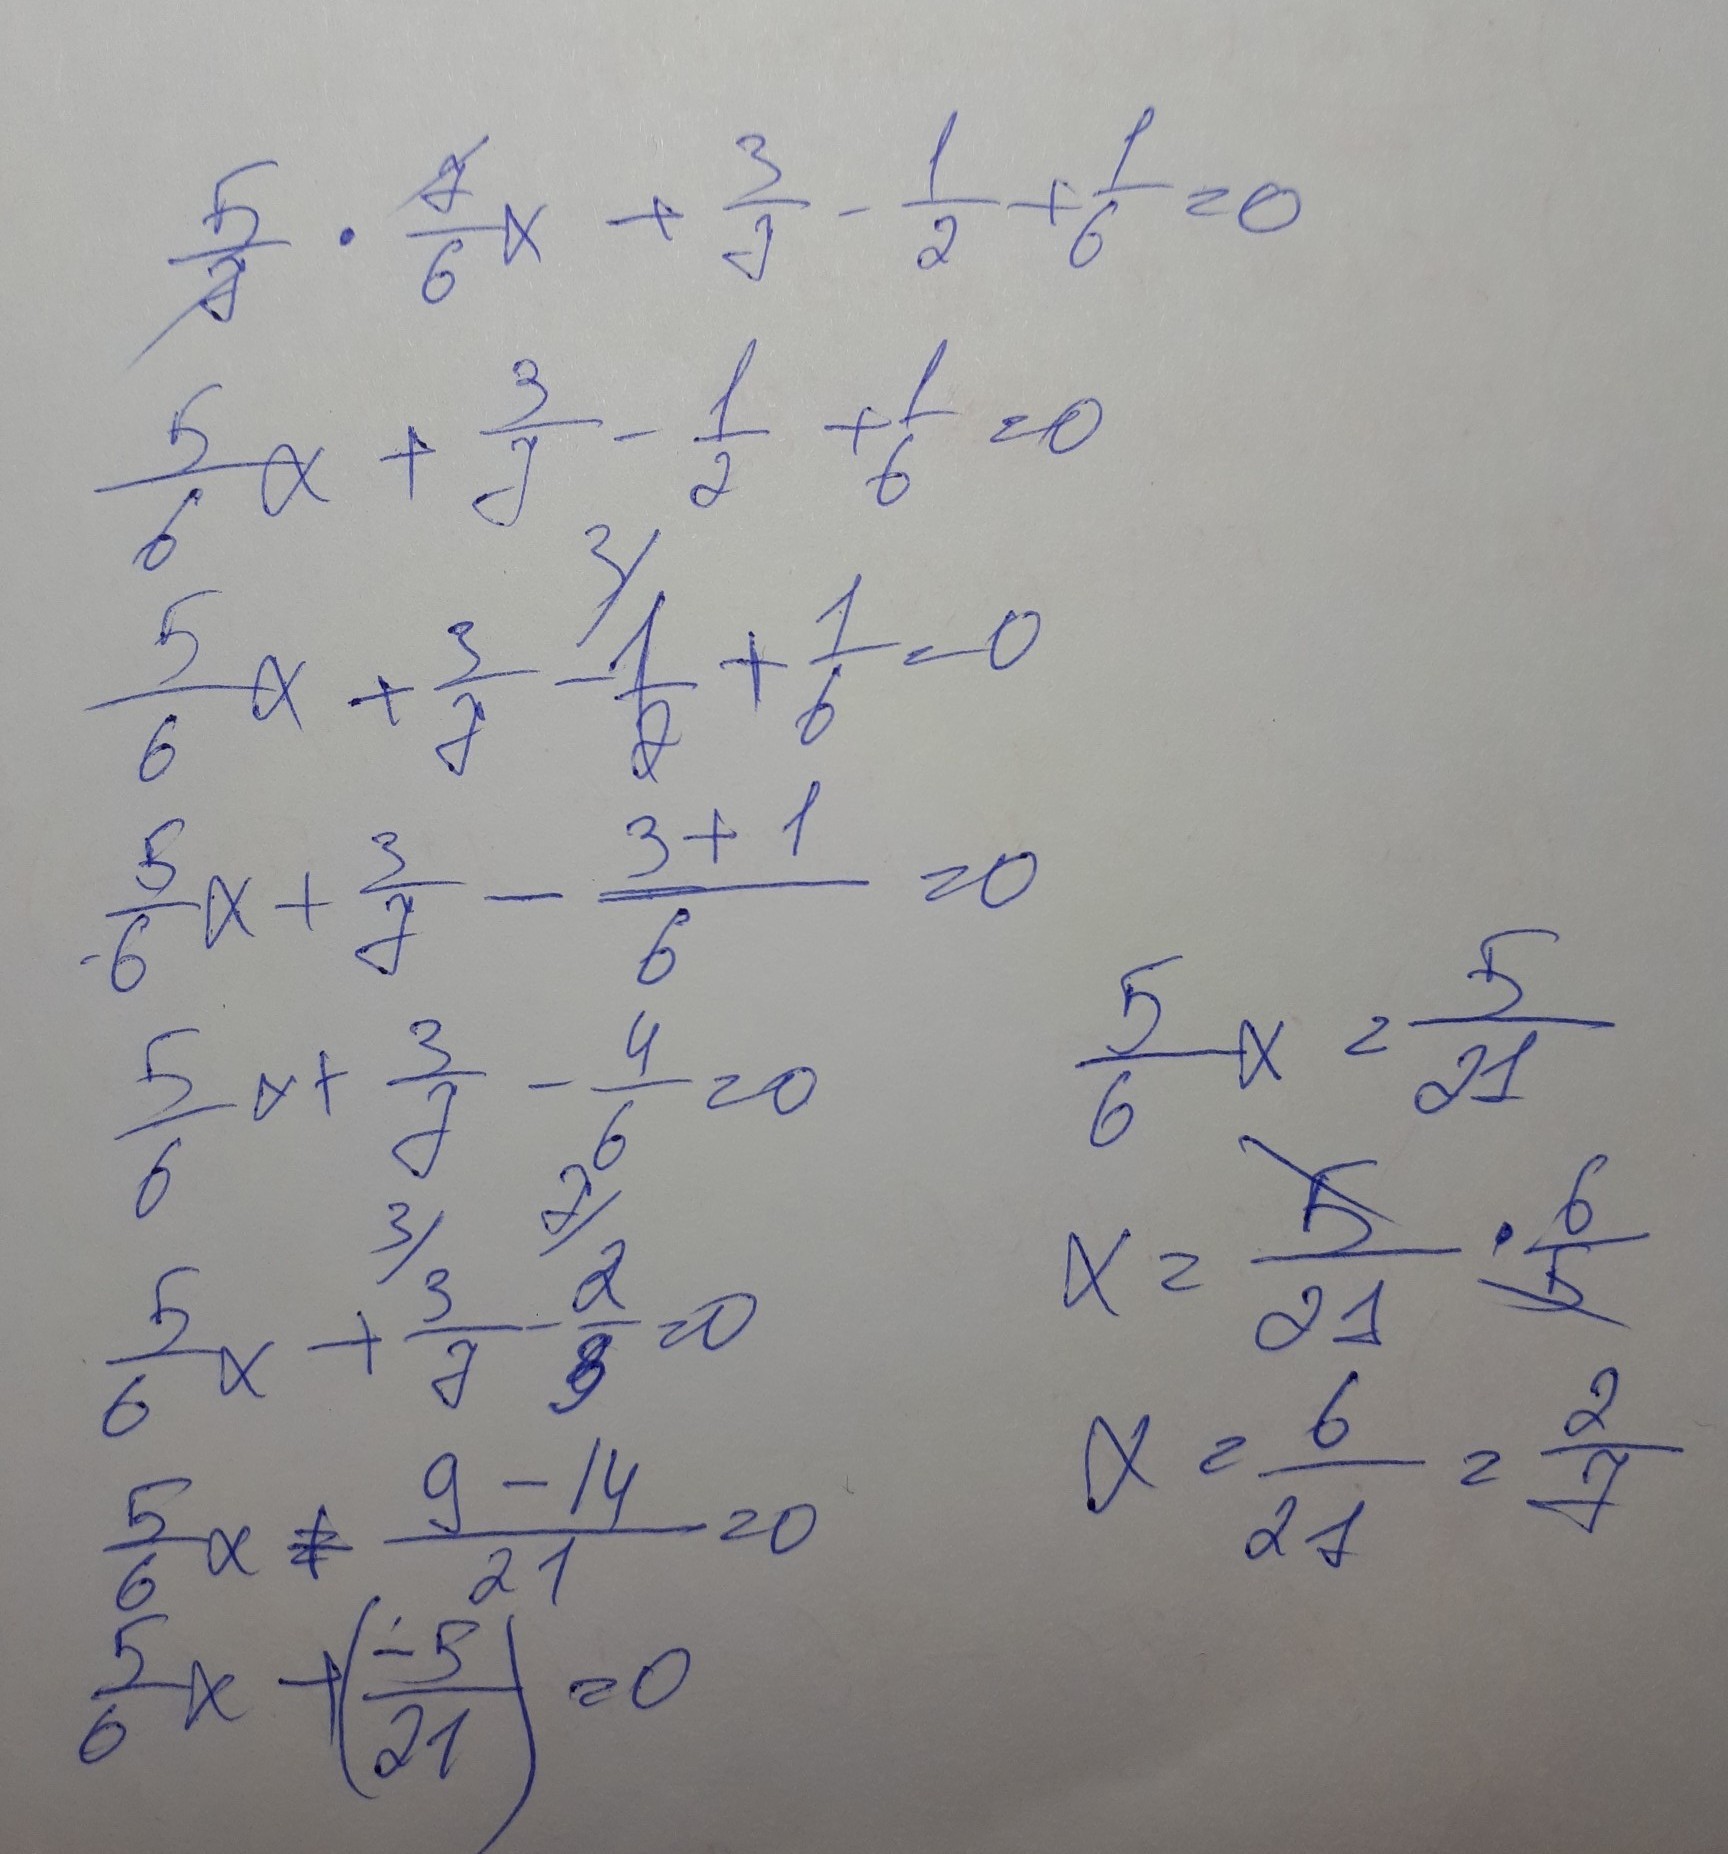 5/7 · 7/6 x + 3/7 - 1/2 + 1/6 = 0
5/6 x + 3/7 - 1/2 + 1/6 = 0
3/
5/6 x + 3/7 - 1/2 + 1/6 = 0
5/6 x + 3/7 - (3+1)/6 = 0
5/6 x + 3/7 - 4/6 = 0
3/ 7/
5/6 x + 3/7 - 2/3 = 0
5/6 x + (9-14)/21 = 0
5/6 x + (-5/21) = 0
5/6 x = 5/21
x = 5/21 · 6/5
x = 6/21 = 2/7